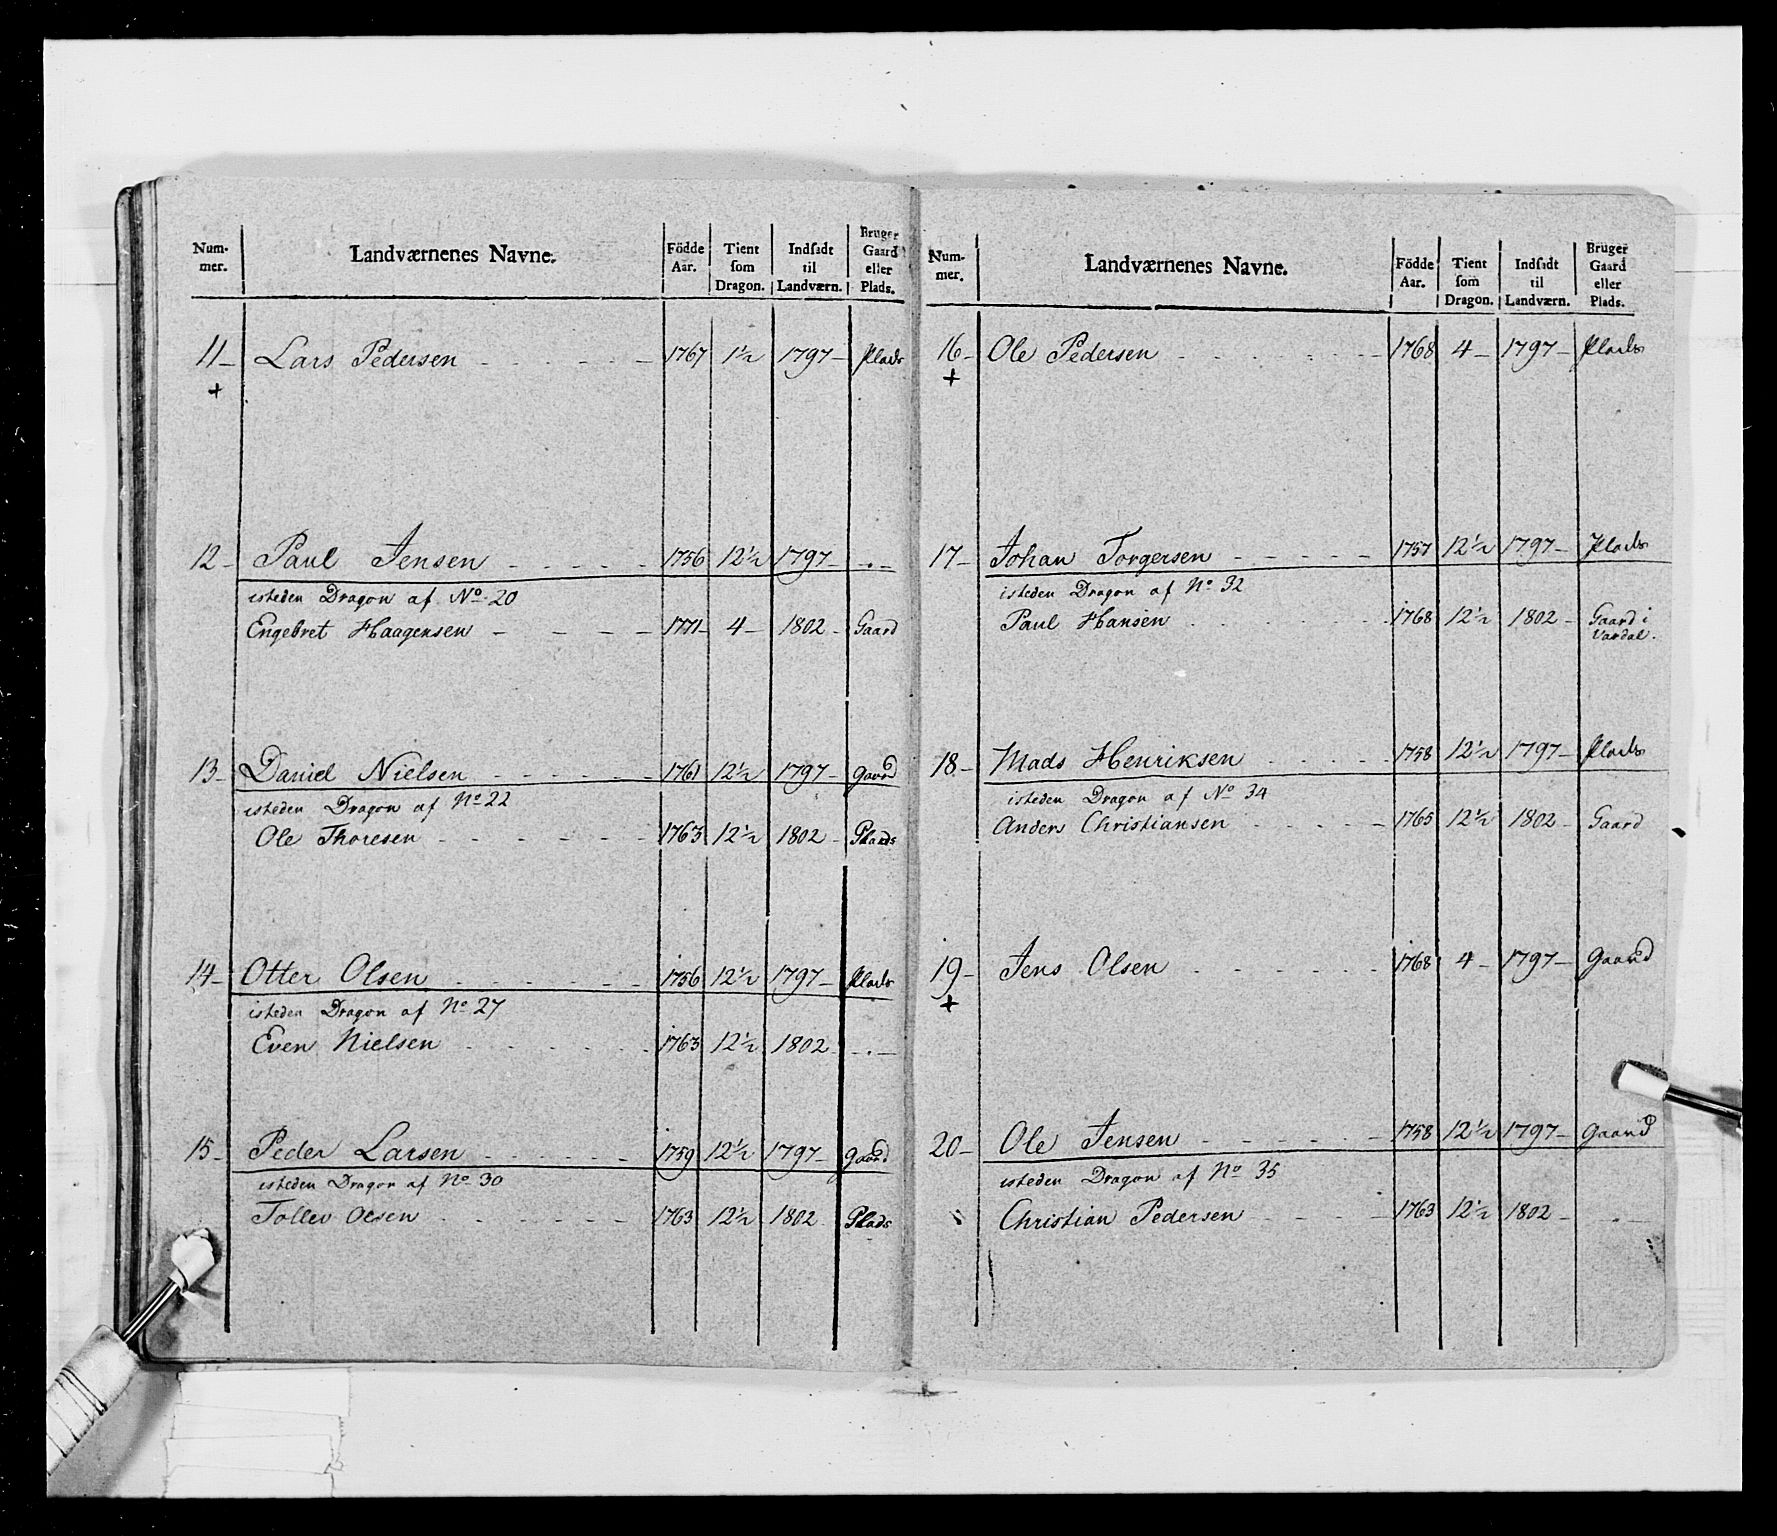 Num-
mer. Landværnenes Navne. Födde
Aar. Tient
som
Dragon. Indsadt
til
Landværn. Bruger
Gaard
eller
Plads.
11 - Lars Pedersen - 1767 1½ 1797 - Plads
+
12 - Paul Jensen - 1756 12½ 1797 - . -
isteden Dragon af No 20
Engebret Haagensen - 1771 - 4 - 1802 - Gaard
13 - Daniel Nielsen - 1761 12½ 1797 - Gaard
isteden Dragon af No 22
Ole Thoresen - 1763 12½ 1802 - Plads
14 - Otter Olsen - 1756 12½ 1797 - Plads
isteden Dragon af No 27
Even Nielsen - 1763 12½ 1802 - . -
15 - Peder Larsen - 1759 12½ 1797 - Gaard
isteden Dragon af No 30
Tollev Olsen - 1763 12½ 1802 Plads
Num-
mer. Landværnenes Navne. Födde
Aar. Tient
som
Dragon. Indsadt
til
Landværn. Bruger
Gaard
eller
Plads.
16 - Ole Pedersen - 1768 4 - 1797 - Plads
+
17 - Johan Torgersen - 1757 12½ 1797 - Plads
isteden Dragon af No 32
Paul Hansen - 1768 12½ 1802 - Gaard i
Vardal.
18 - Mads Henriksen - 1758 12½ 1797 - Plads
isteden Dragon af No 34
Anders Christiansen - 1765 12½ 1802 - Gaard
19 - Jens Olsen - 1768 4 - 1797 - Gaard
+
20 - Ole Jensen - 1758 12½ 1797 - Gaard
isteden Dragon af No 35
Christian Pedersen - 1763 12½ 1802 - . -